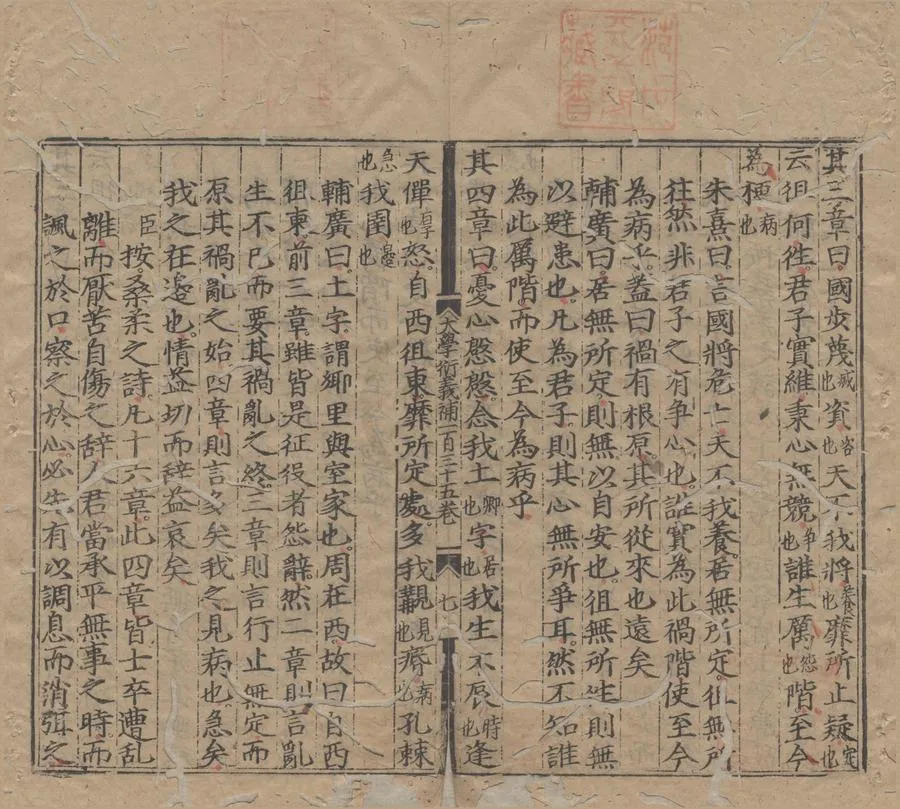 其三章曰國步蔑滅也資咨也天不我將養也靡所止疑定也
云徂何徃君子實維秉心無競爭也誰生厲怨也階至今
為梗病也
朱熹曰言國將危亡天不我養居無所定徂無所
往然非君子之有争心也誰實為此禍階使至今
為病乎蓋曰禍有根原其所從來也遠矣
輔廣曰居無所定則無以自安也徂無所徃則無
以避患也凡為君子則其心無所爭耳然不知誰
為此厲階而使至今為病乎
其四章曰憂心慇慇念我土鄉也字居也我生不辰時也逢
大學衍義補一百三十五卷 七
天僤厚也怒自西徂東靡所定處多我覯見也瘠病也孔棘
急也我圉邊也
輔廣曰土字謂鄉里與室家也周在西故曰自西
徂東前三章雖皆是征役者怨辭然二章則言亂
生不已而要其禍亂之終三章則言行止無定而
原其禍亂之始四章則言多矣我之見病也急矣
我之在邊也情益切而辞益哀矣
臣按桑柔之詩凡十六章此四章皆士卒遭乱
離而厭苦自傷之辞人君當承平無事之時而
諷之於口察之於心必先有以調息而消弭之